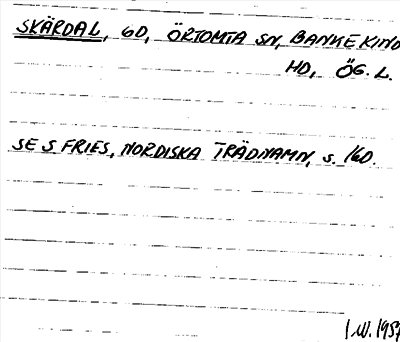 SKÄRDAL, GD, ÖRTOMTA SN, BANKEKIND
HD, ÖG. L.
SE S FRIES, NORDISKA TRÄDNAMN, S. 160.
I.W. 1957